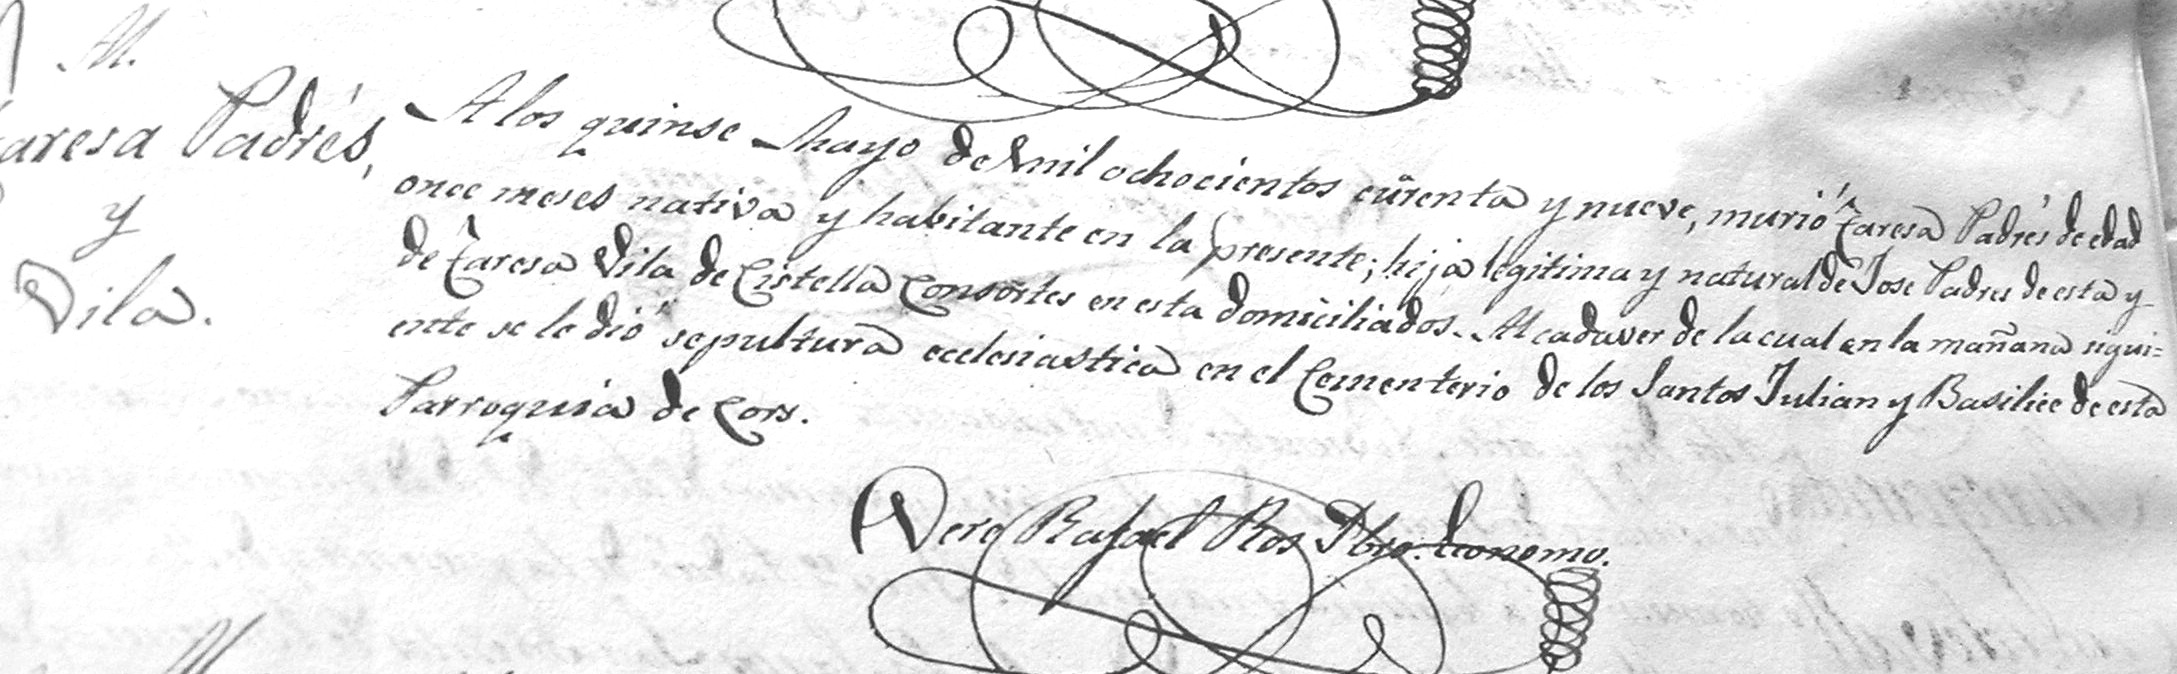 M.
Taresa Padrés,
y
Vila.
A los quinse Mayo de mil ochocientos cûrenta y nueve, murió Taresa Padrés de edad
once meses nativa y habitante en la presente; hija legitima y natural de Jose Padres de esta y
de Taresa Vila de Cistella Consortes en esta domiciliados. Al cadaver de la cual en la mañana sigui=
ente se le dió sepultura eclesiastica en el Cementerio de los Santos Julian y Basilice de esta
Parroquia de Cors.
Rafael Ros Pbro. Economo.